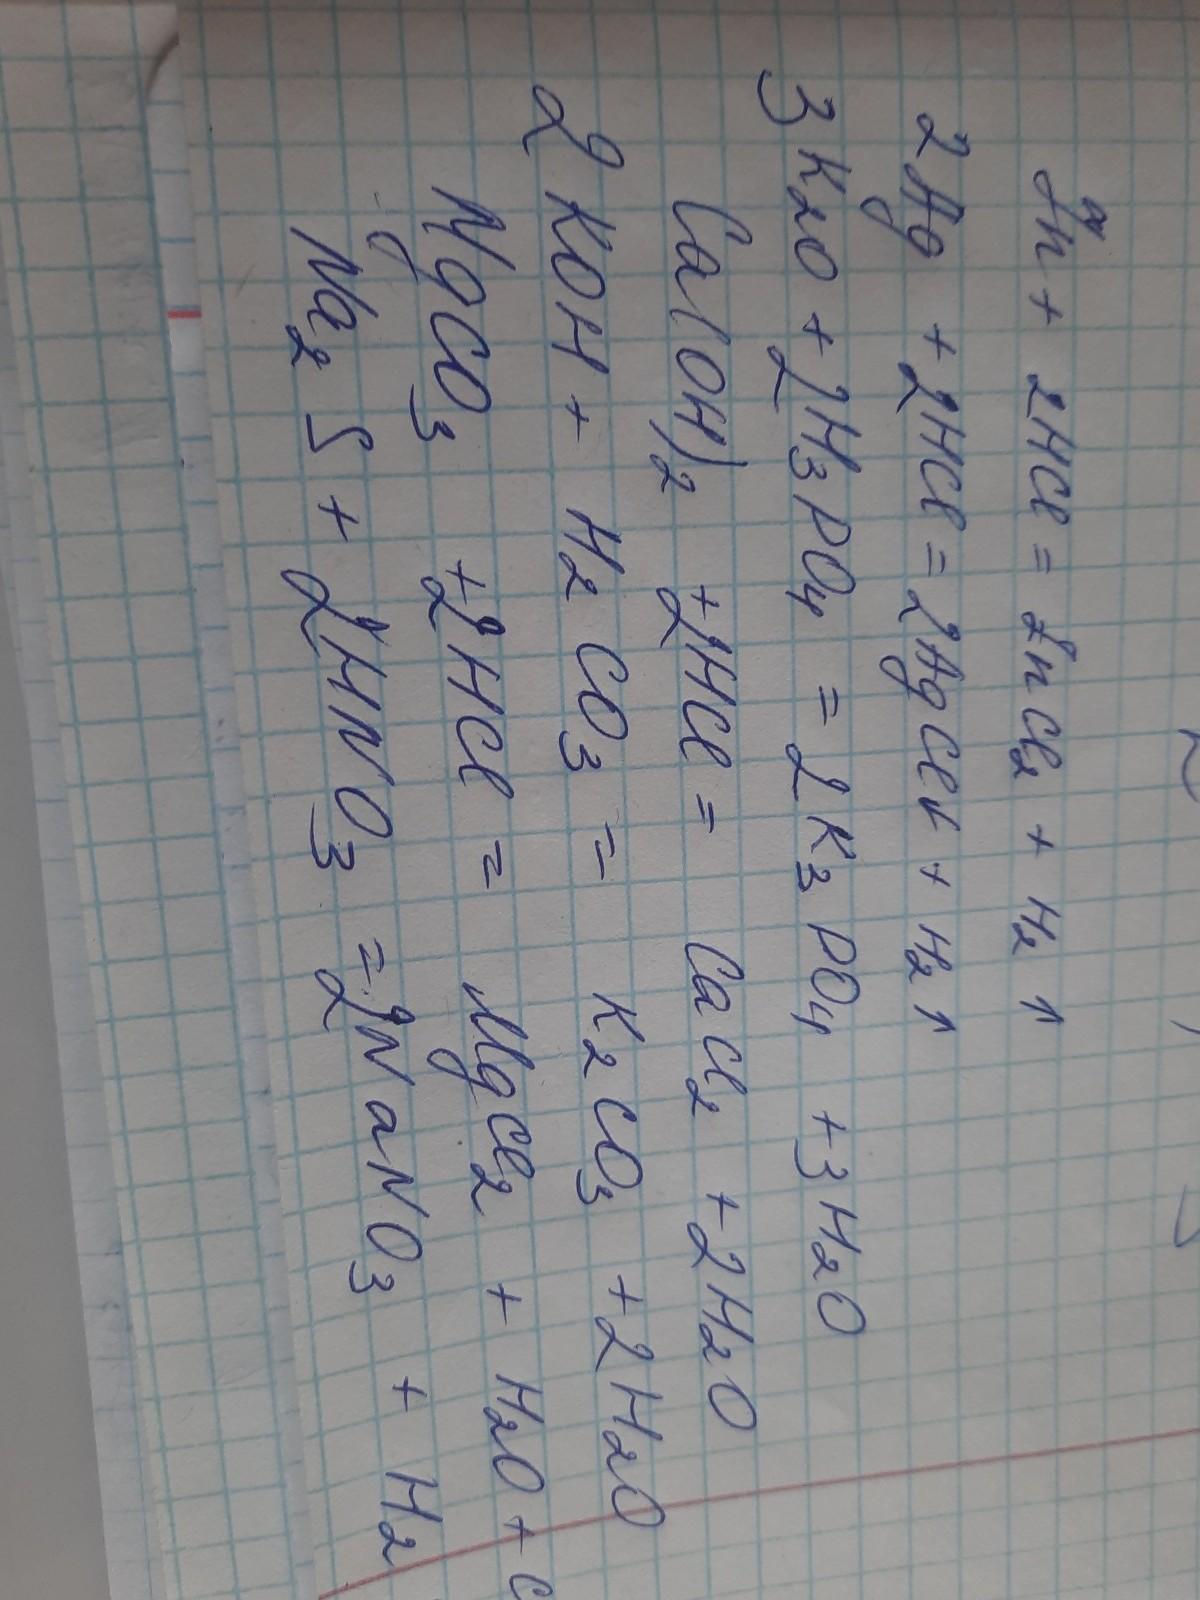 Zn + 2HCl = ZnCl2 + H2 ↑
2Ag + 2HCl = 2AgCl↓ + H2 ↑
3K2O + 2H3PO4 = 2K3PO4 + 3H2O
Ca(OH)2 + 2HCl = CaCl2 + 2H2O
2KOH + H2CO3 = K2CO3 + 2H2O
MgCO3 + 2HCl = MgCl2 + H2O + C
Na2S + 2HNO3 = 2NaNO3 + H2